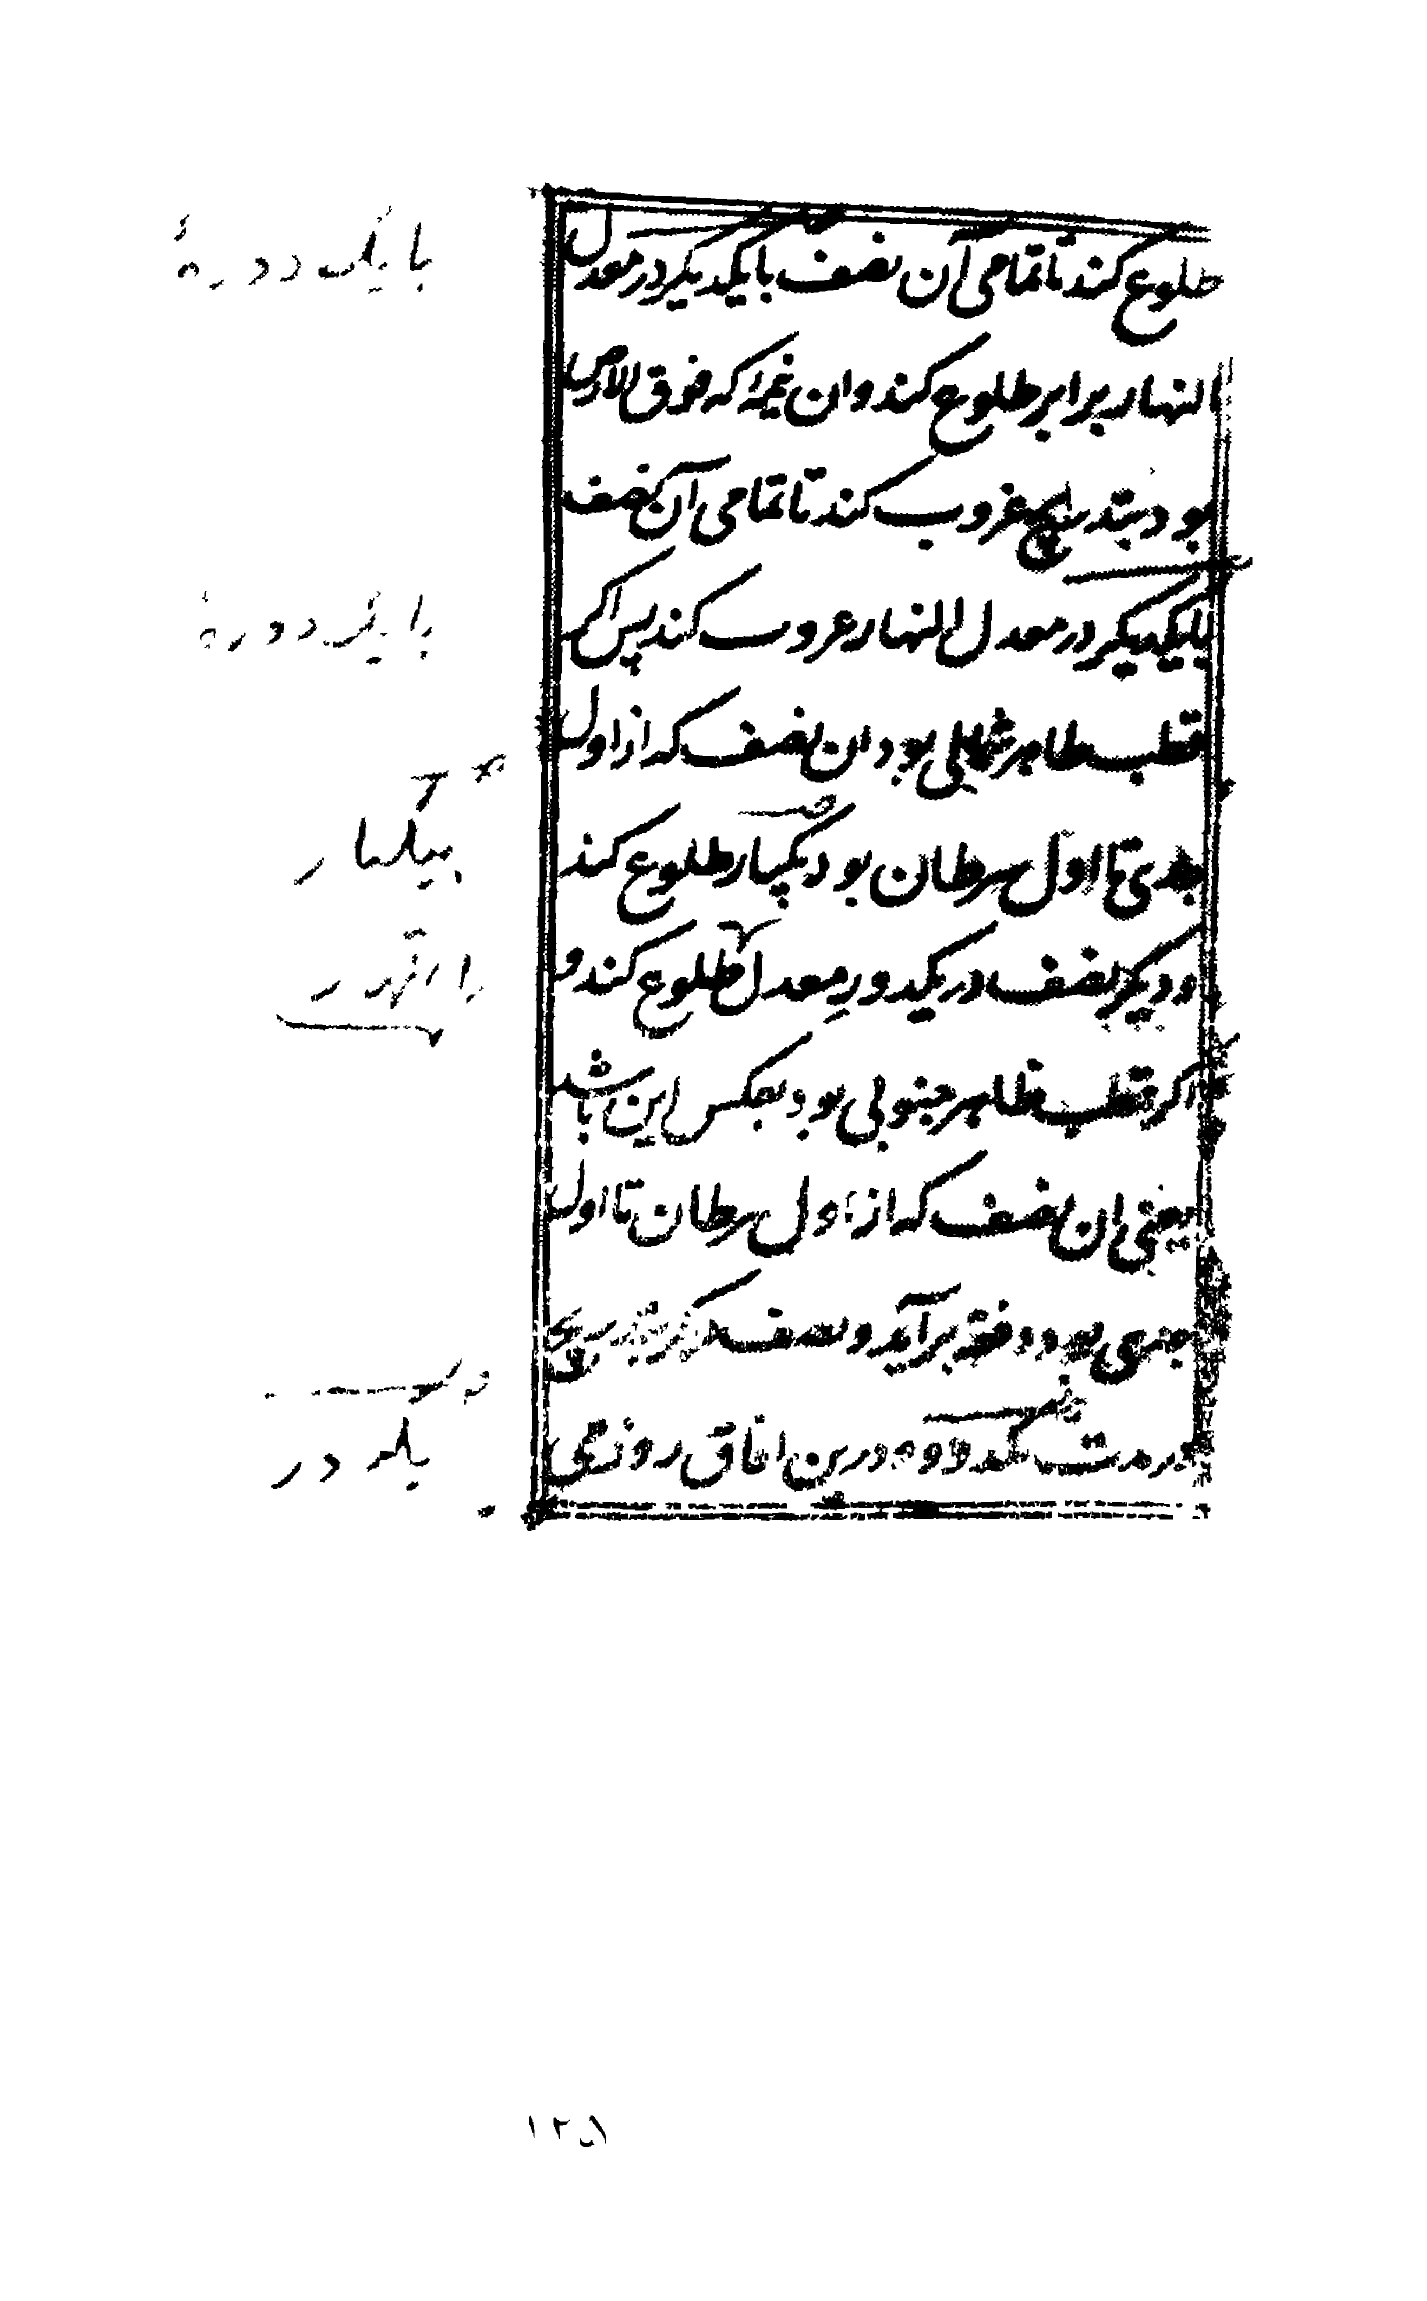 طلوع کند تا تمامی آن نصف بایکدیگر در معدل
النهار برابر طلوع کند وان نیمه را که فوق الارض
بود بتدریج غروب کند تا تمامی آن نصف
بایکدیگر در معدل النهار غروب کند پس اگر
قطب ظاهر شمالی بود ان نصف که از اول
جدی تا اول سرطان بود یکبار طلوع کند
و دیگر نصف در یکدور معدل طلوع کند و
اگر قطب ظاهر جنوبی بود بعکس این باشد
یعنی ان نصف که از اول سرطان تا اول
جدی بود دفعة برآید و نصف دیگر بتدریج
در مدت یکدور و درین افاق روز می
بایک دورهٔ
بایک دورهٔ
بیکبار
یکدور
۱۲۵